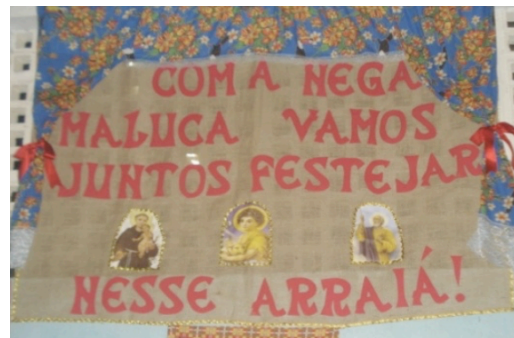 COM A NEGA
MALUCA VAMOS
JUNTOS FESTEJAR
NESSE ARRAIÁ!